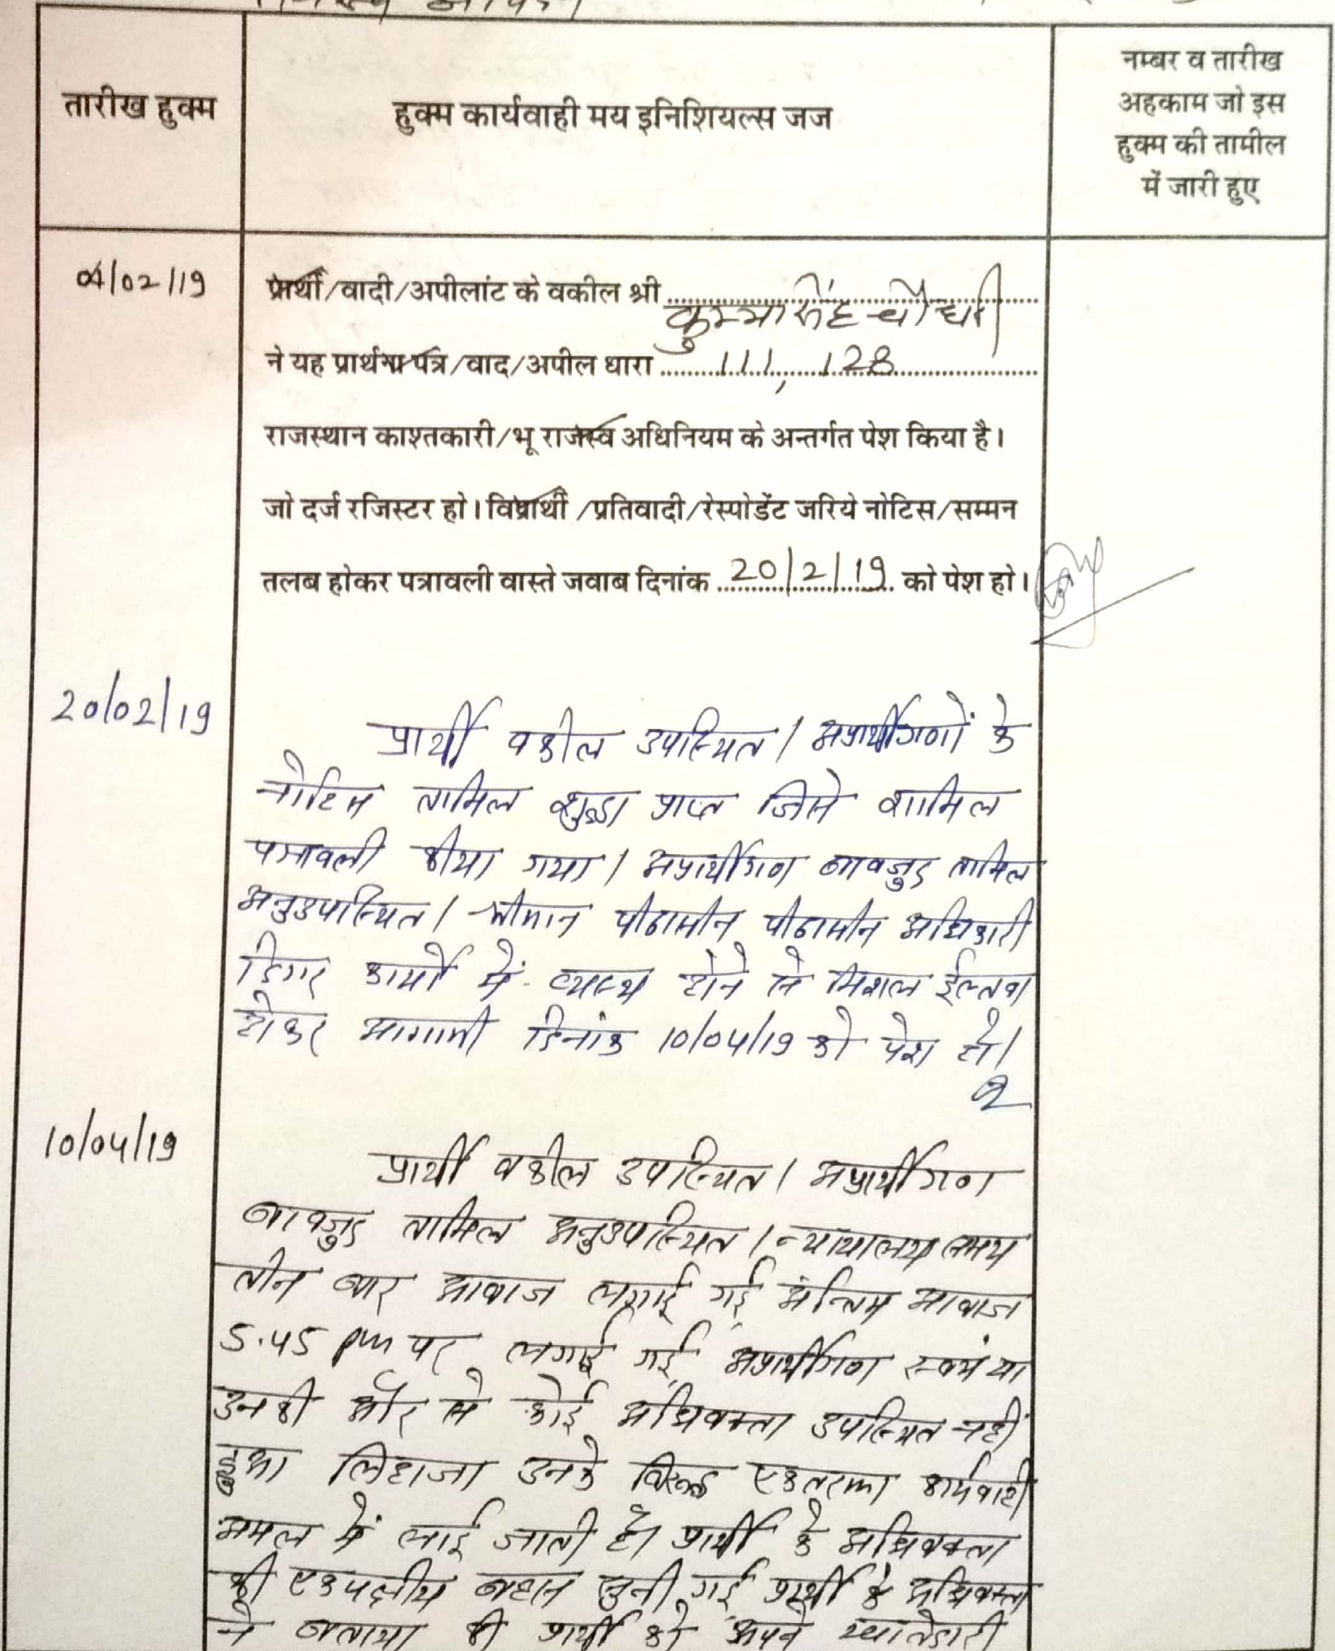 तारीख हुक्म
हुक्म कार्यवाही मय इनिशियल्स जज
नम्बर व तारीख
अहकाम जो इस
हुक्म की तामील
में जारी हुए
04/02/19
प्रार्थी/वादी/अपीलांट के वकील श्री
कुम्भासिंह चौधरी
ने यह प्रार्थना पत्र/वाद/अपील धारा 111, 128
राजस्थान काश्तकारी/भू राजस्व अधिनियम के अन्तर्गत पेश किया है।
जो दर्ज रजिस्टर हो। विप्रार्थी /प्रतिवादी/रेस्पोडेंट जरिये नोटिस/सम्मन
तलब होकर पत्रावली वास्ते जवाब दिनांक 20/2/19 को पेश हो।
20/02/19
प्रार्थी वकील उपस्थित। अप्रार्थीगणों के
नोटिस तामिल शुद्धा प्राप्त जिसे शामिल
पत्रावली कीया गया। अप्रार्थीगण बावजुद तामिल
अनुउपस्थित। श्रीमान पीठासीन पीठासीन अधिकारी
दिगर कार्यो में व्यस्थ होने से मिशल ईल्तवा
होकर आगामी दिनांक 10/04/19 को पेश हो।
10/04/19
प्रार्थी वकील उपस्थित। अप्रार्थीगण
बावजुद तामिल अनुउपस्थित। न्यायालय समय
तीन बार आवाज लगाई गई अंन्तिम आवाज
5.45 pm पर लगाई गई अप्रार्थीगण स्वयं या
उनकी और से कोई अधिवक्ता उपस्थित नहीं
हुआ लिहाजा उनके विरूद्ध एकतरफा कार्यवाही
अमल में लाई जाती है। प्रार्थी के अधिवक्ता
की एकपक्षीय बहस सुनी गई प्रार्थी के अधिवक्ता
ने बताया की प्रार्थी को अपने खातेदारी